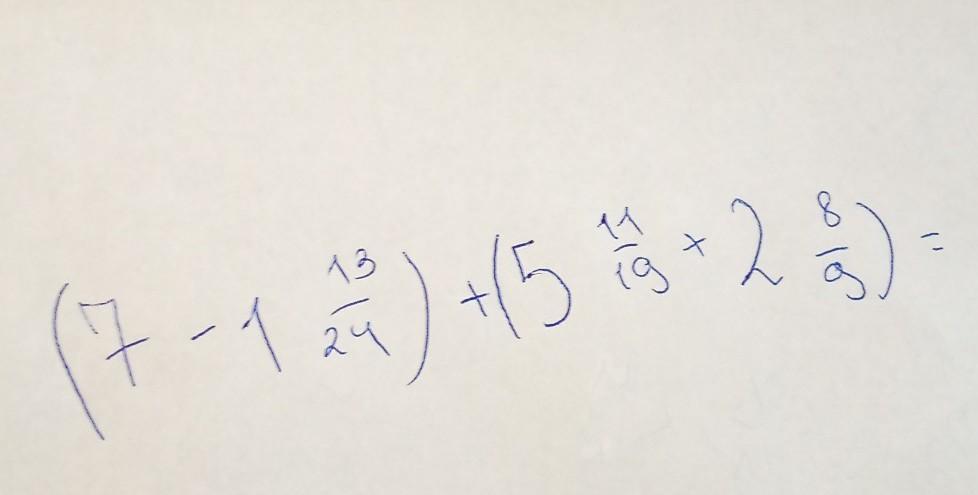 (7 - 1 13/24) + (5 11/19 + 2 8/9) =